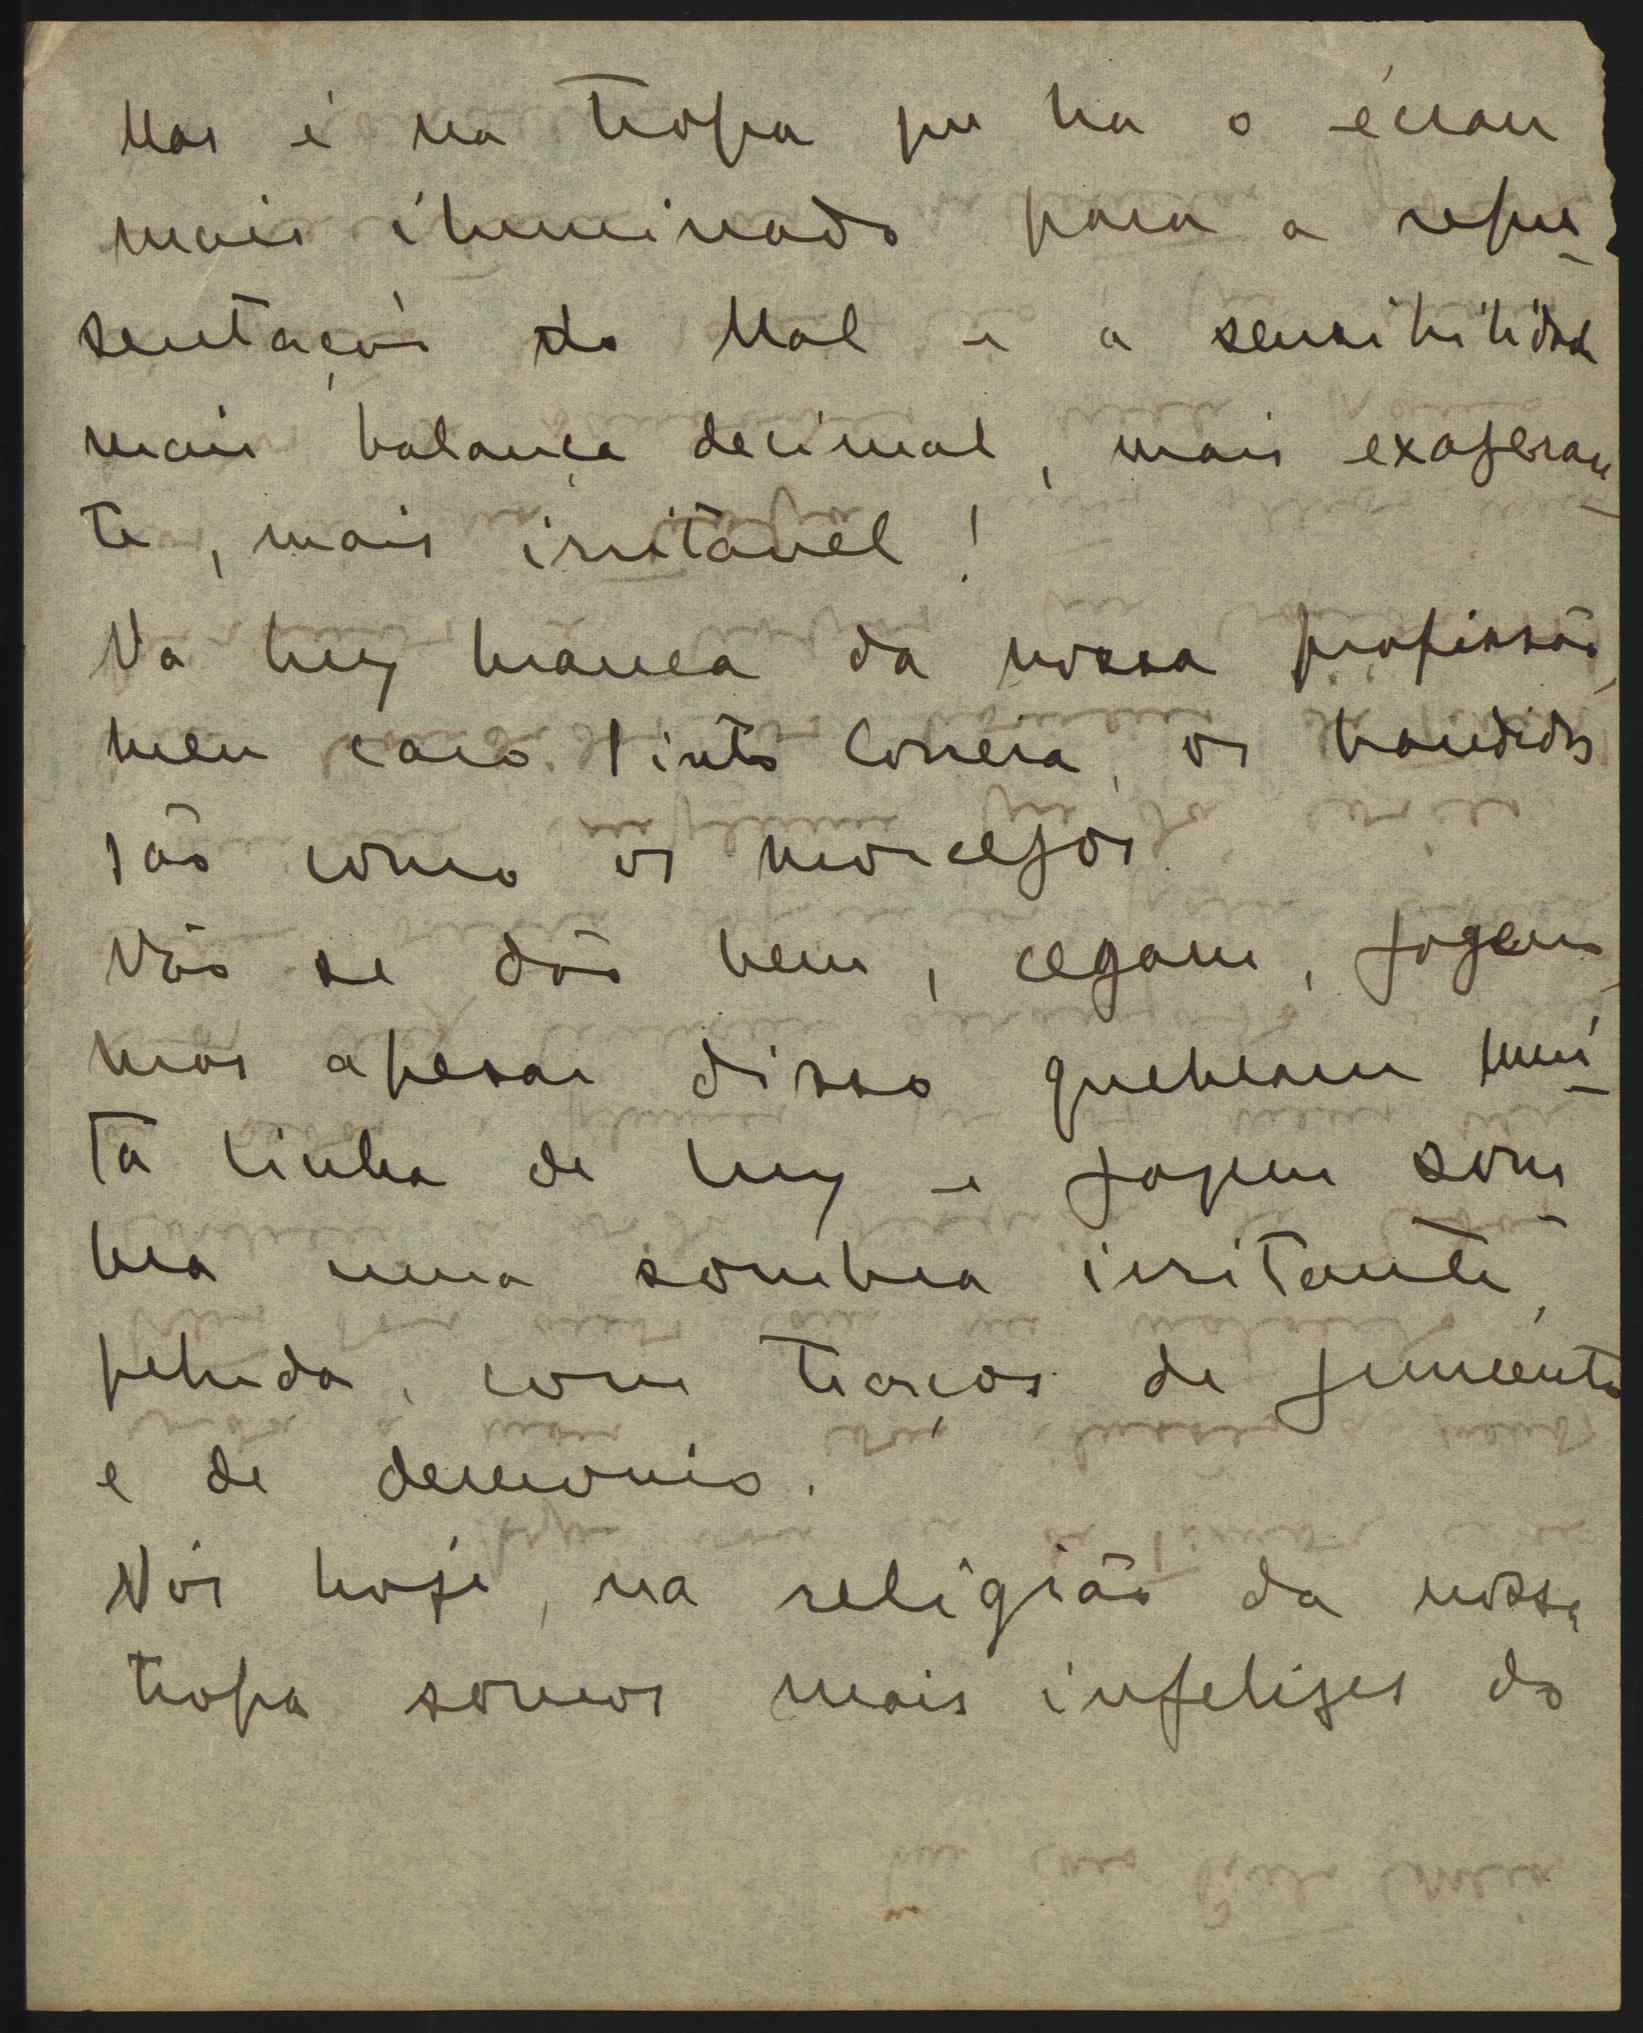 Mas é na tropa que ha o écran
mais iluminado para a repre-
sentação do Mal e a sensibilidade
mais balança decimal, mais exageran-
te, mais irritavel!
Na luz branca da nossa profissão,
meu caro Pinto Correia, os bandidos
são como os morcegos.
Não se dão bem, cegam, fogem,
mas apesar disso quebram mui-
ta linha de luz e fazem som-
bra uma sombra irritante,
peluda, com traços de jumento
e de demonio.
Nós hoje, na religião da nossa
tropa somos mais infelizes do